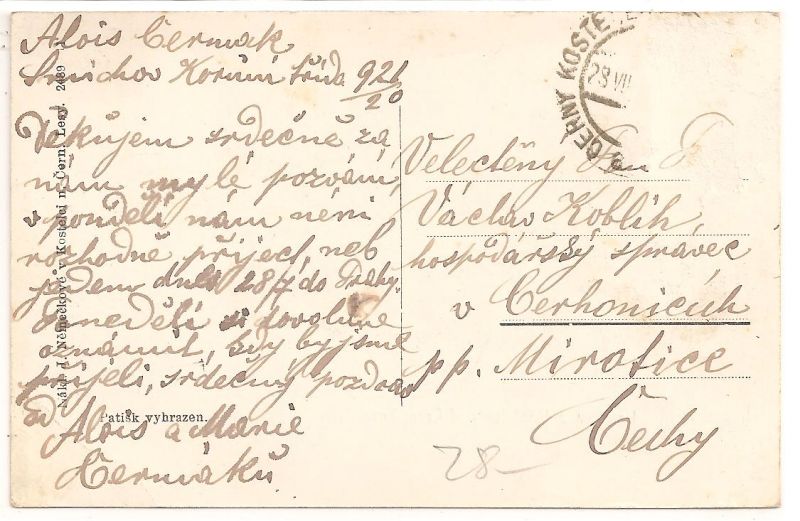 Alois Čermak
Smíchov Korunní třída 921/20
Děkujem srdečně za
nám mylé pozvání,
v pondělí nám není
rozhodně přiject, neb
jedem dnes 28/7 do Prahy.
neděli si dovolíme
oznámit, kdy by jsme
přijeli, srdečný pozdrav
od Alois a Marie
Čermáků
Nákl. J. Němečkové v Kostelci n. Čern. Lesy. 2489
Patisk vyhrazen.
ČERNÝ KOSTE
28 VII
Velectěný Pan
Václav Koblih,
hospodářský správec
v Cerhonicích
p. p. Mirotice
Čechy
28-